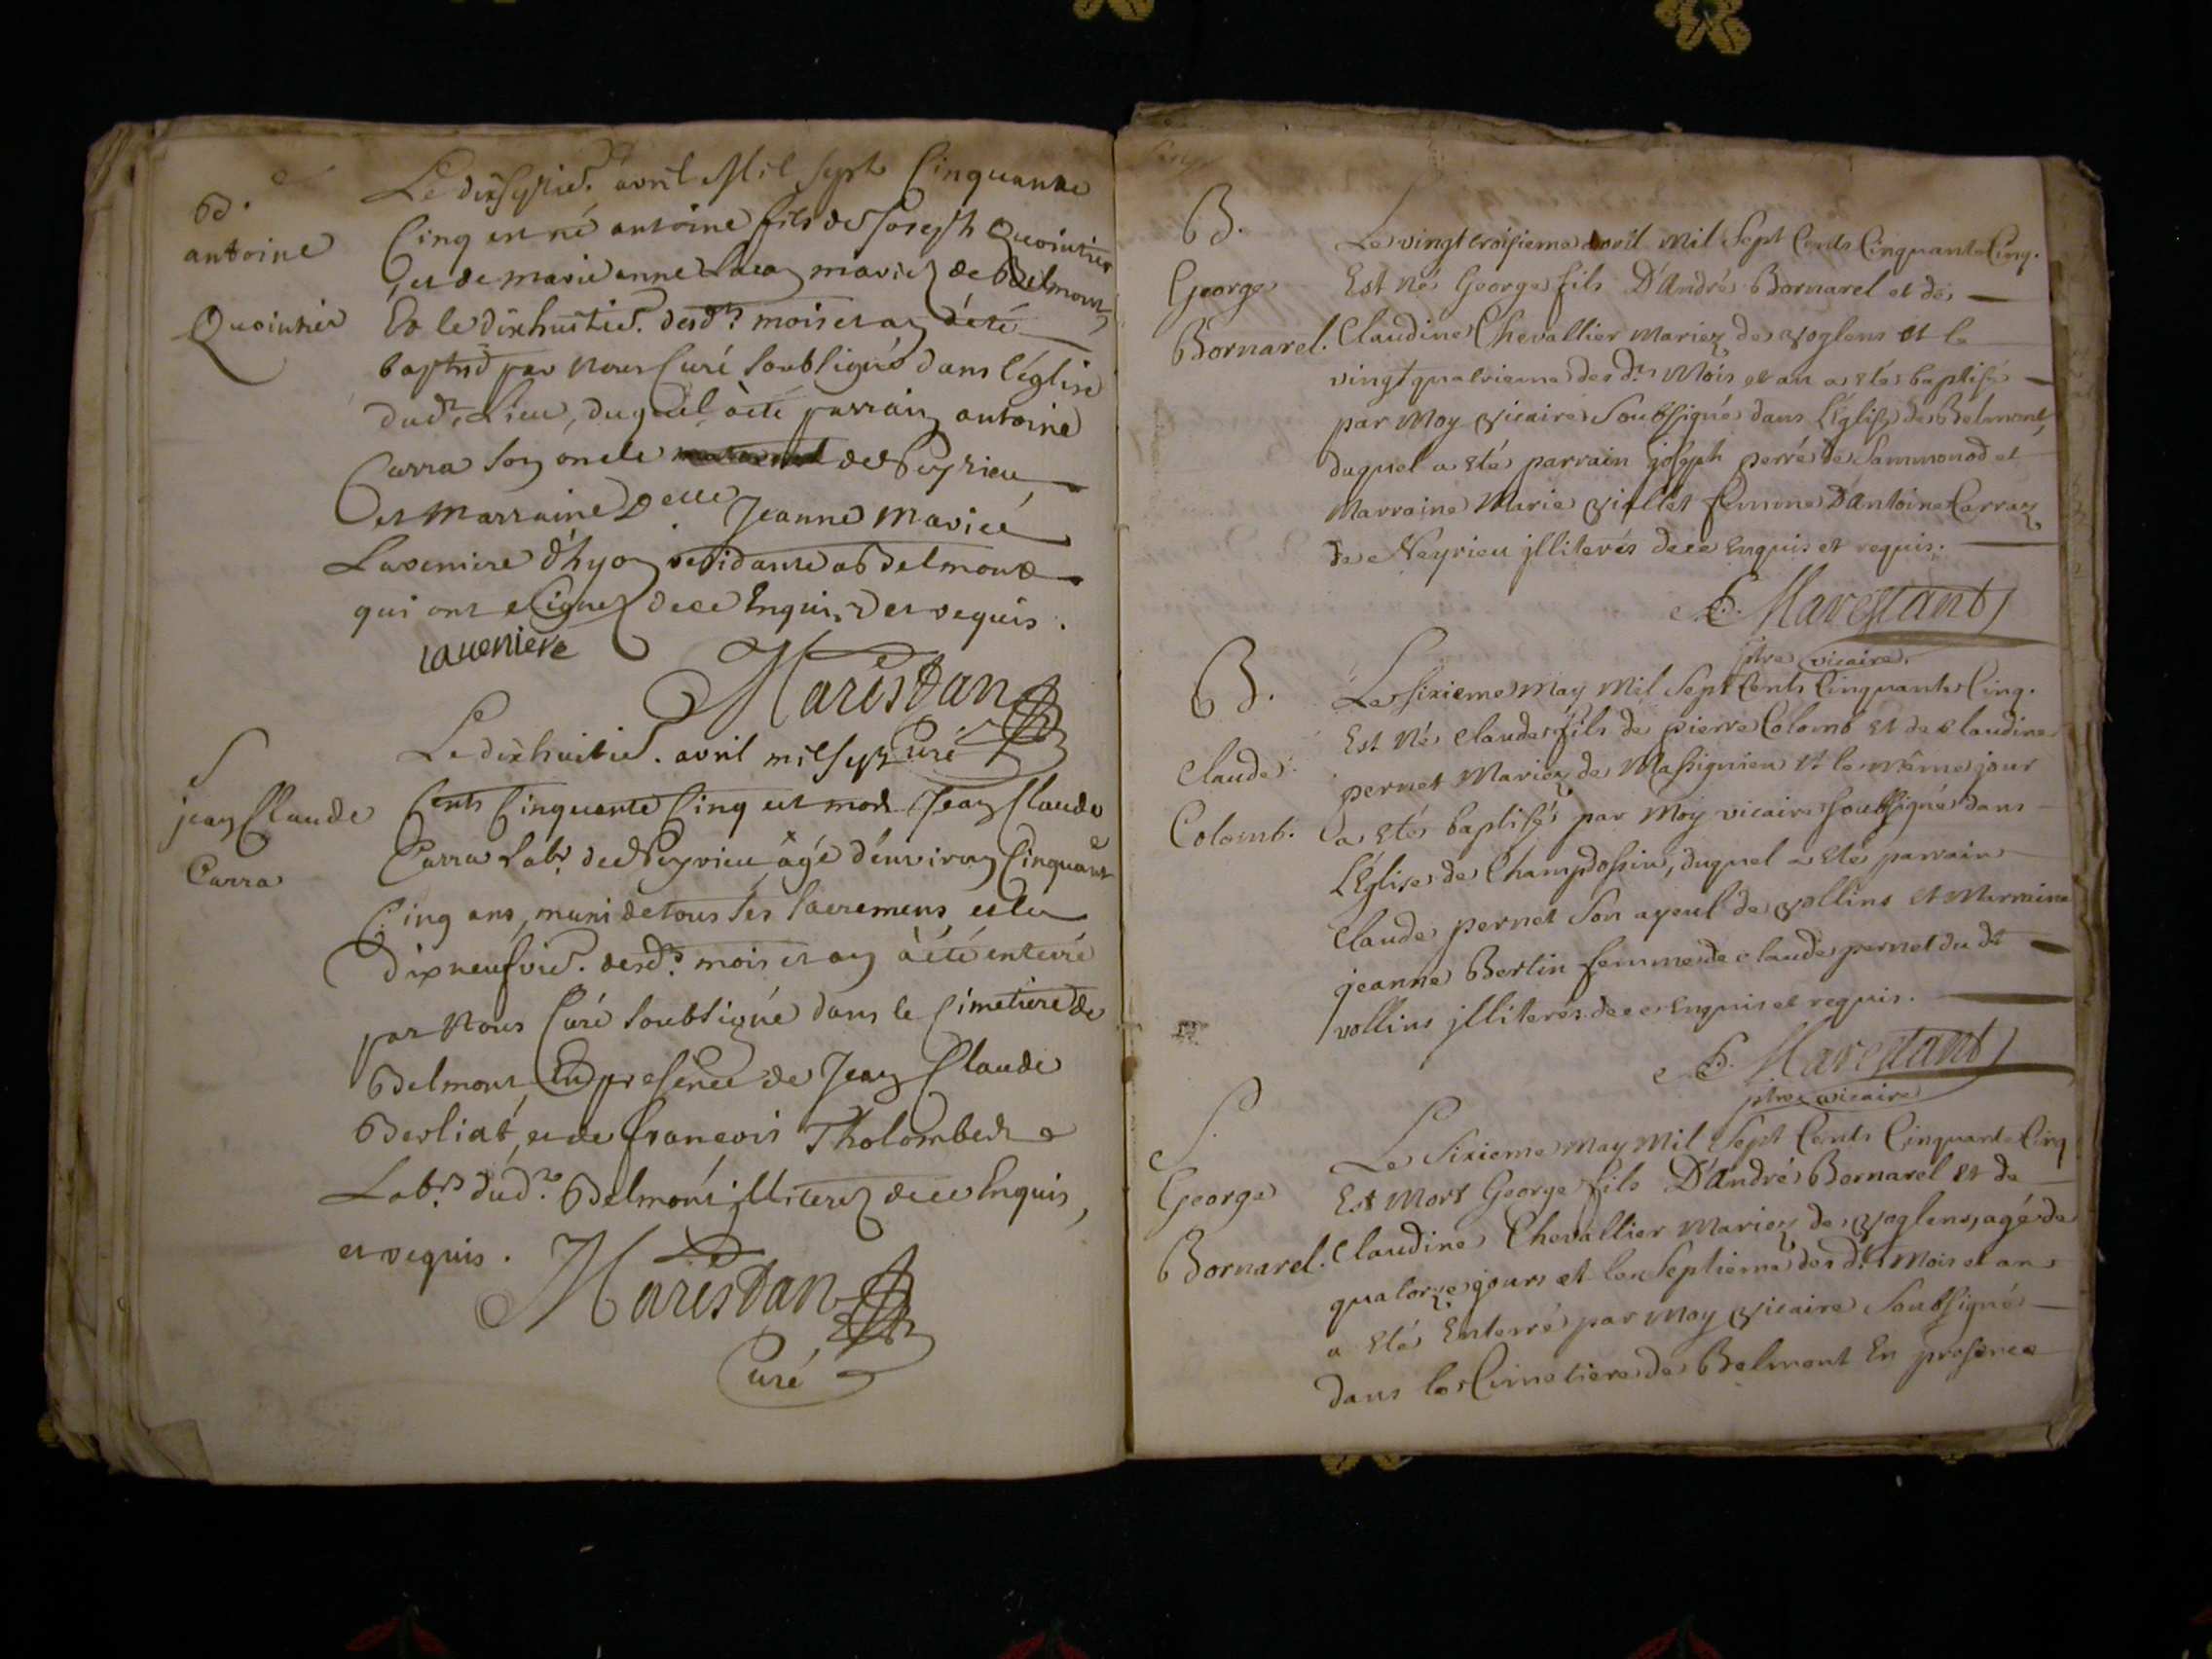 B.
antoine
Quointier
Le dixseptie. avril Mil Sept Cinquante
Cinq est né antoine fils de Joseph Quointier
et de marie anne mariez de Belmont
Et le dixhuitie. desd. mois et an a été
baptisé par Nous Curé Soubsigné dans l'église
dud. Lieu, duquel à été parrain antoine
Carra son oncle de Peyrieu
et Marraine Delle Jeanne Marie
Laveniere d'hyon residante a Belmont
qui ont Signez de ce Enquis et requis.
laueniere
Marestan
Curé
S
jean Claude
Carra
Le dixhuitie. avril mil sept
Cents Cinquante Cinq est mort Jean Claude
Carra Labr. de Peyrieu âgé d'environ Cinquante
Cinq ans, muni de tous ses Sacremens, et le
dixneufvie. desd. mois et an à été enterré
par Nous Curé Soubsigné dans le Cimetiere de
Belmont En presence de Jean Claude
Berliat, et de francois Tholombet
Labrs. dud. Belmont illiterez de ce Enquis,
et requis.
Marestan
Curé
B.
George
Bornarel.
Le vingt troisieme avril Mil Sept Cents Cinquante Cinq.
Est Né George fils D'André Bornarel et de
Claudine Chevallier Mariez de Voglens et le
vingt quatrieme des dts Mois et an a eté baptisé
par Moy Vicaire Soubsigné dans L'Eglise de Belmont,
duquel a eté parrain joseph perré de Sammonod et
Marraine Marie Viollet femme D'Antoine Carraz
de Neyrieu jlliterés de ce Enquis et requis.
Marestant
ptre vicaire.
B.
Claude
Colomb.
Le sixieme May Mil Sept Cents Cinquante Cinq.
Est Né Claude fils de pierre Colomb Et de Claudine
pernet Mariez de Massignieu et le même jour
a eté baptisé par Moy vicaire Soubsigné dans
L'Eglise de Champdossin, duquel a eté parrain
Claude pernet Son ayeul de Vollins et Marraine
jeanne Bertin femme de Claude pernet du dt
vollins jlliterés de ce Enquis et requis.
Marestant
ptre vicaire
S.
George
Bornarel.
Le Sixieme May Mil Sept Cents Cinquante Cinq
Est Mort George fils D'André Bornarel et de
Claudine Chevallier Mariez de Voglens, agé de
quatorze jours et le Septieme des dts Mois et an
a eté Enterré par Moy Vicaire Soubsigné
dans le Cimetiere de Belmont En presence